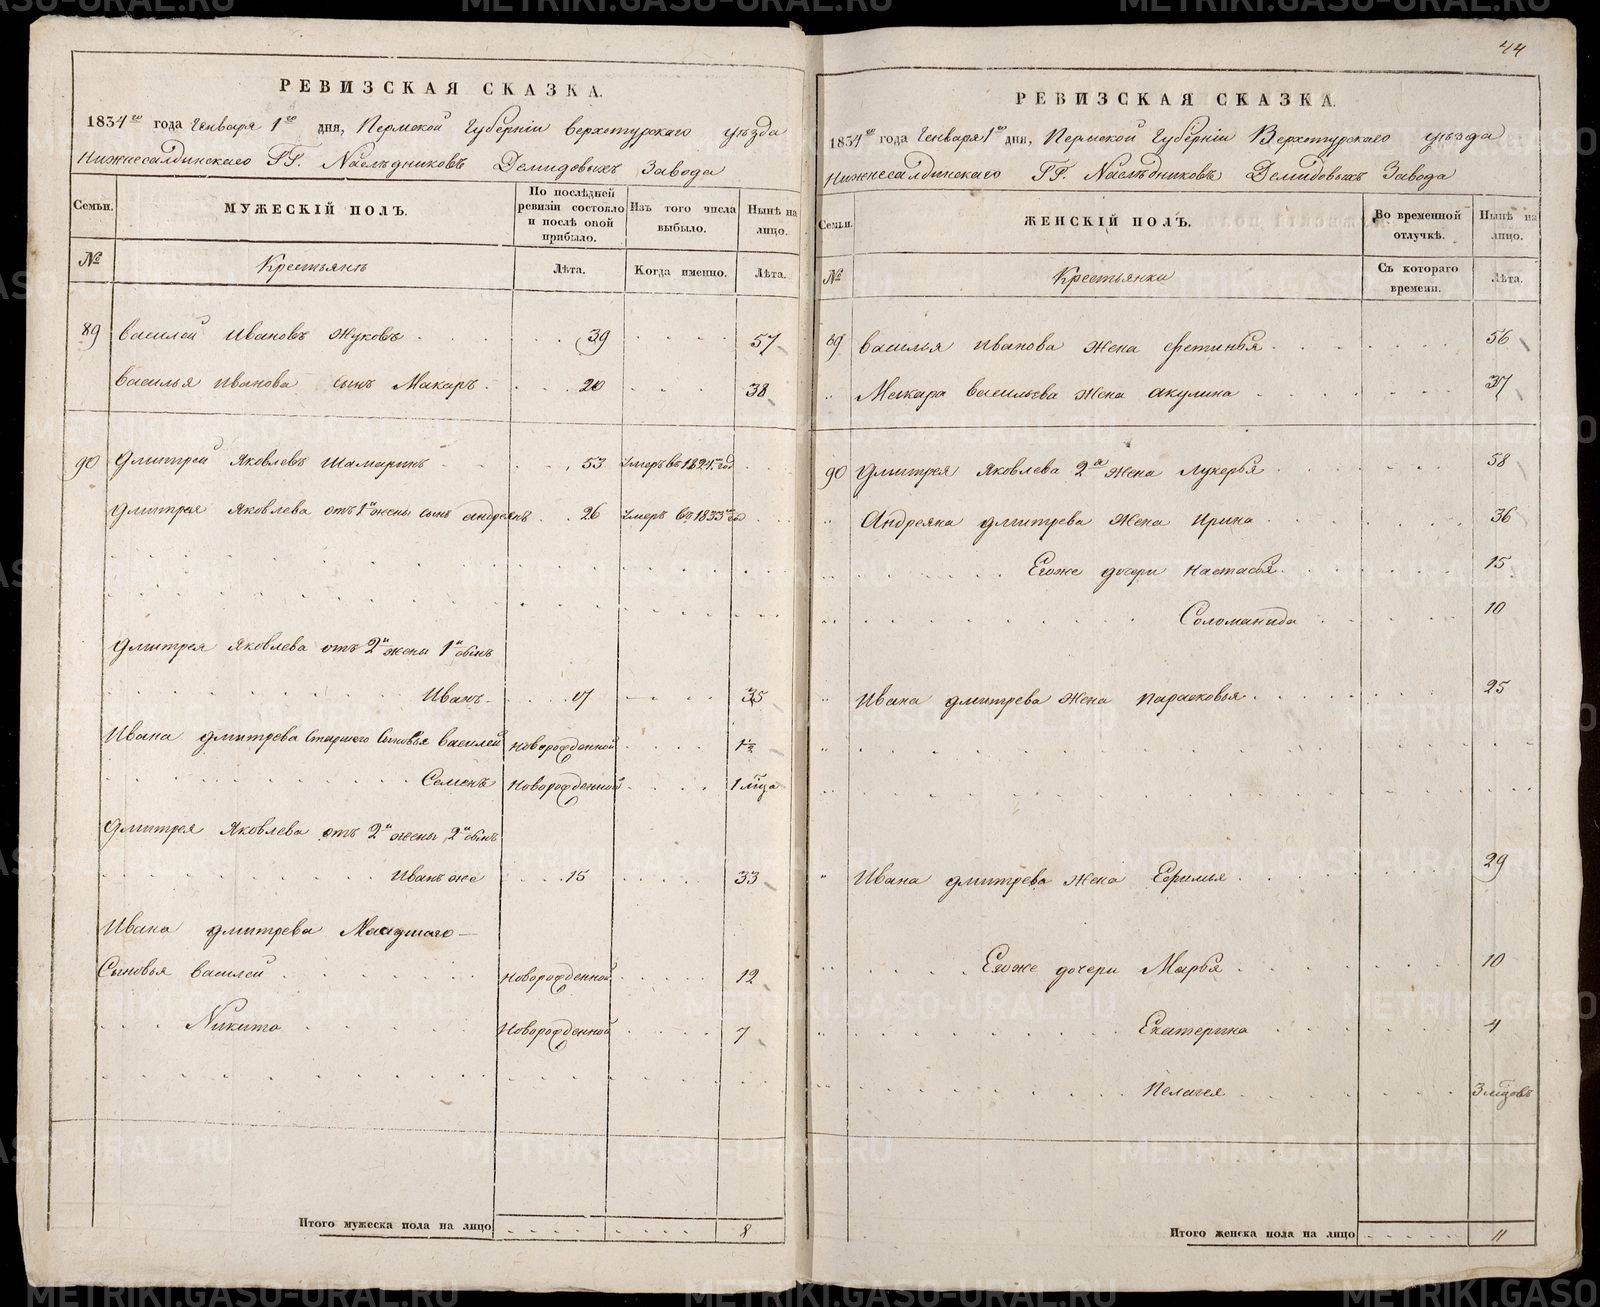 44
РЕВИЗСКАЯ СКАЗКА.
1834го года Генваря 1го дня, Пермской Губерніи Верхотурскаго уѣзда
Нижнесалдинскаго ГГ. Наслѣдниковъ Демидовыхъ Завода
Семьи.
МУЖЕСКІЙ ПОЛЪ.
По послѣдней ревизіи состояло и послѣ оной прибыло.
Изъ того числа выбыло.
Нынѣ на лицо.
№
Крестьянъ
Лѣта.
Когда именно.
Лѣта.
89 Василей Ивановъ Жуковъ 39 57
Василья Иванова сынъ Макаръ 20 38
90 Дмитрей Яковлевъ Шамаринъ 53 умеръ въ 1821мъ год
Дмитрея Яковлева отъ 1й жены сынъ Андреянъ 26 умеръ въ 1833м го
Дмитрея Яковлева отъ 2й жены 1й сынъ
Иванъ 17 35
Ивана Дмитрева старшего сыновья Василей новорожденной 1½
Семенъ Новорожденной 1 мца
Дмитрея Яковлева отъ 2й жены 2й сынъ
Иванъ же 15 33
Ивана Дмитрева Младшаго
Сыновья Василей Новорожденной 12
Никита Новорожденной 7
Итого мужеска пола на лицо 8
РЕВИЗСКАЯ СКАЗКА.
1834го года Генваря 1го дня, Пермской Губерніи Верхотурскаго уѣзда
Нижнесалдинскаго ГГ. Наслѣдниковъ Демидовыхъ Завода
Семьи.
ЖЕНСКІЙ ПОЛЪ.
Во временной отлучкѣ.
Нынѣ на лицо.
№
Крестьянки
Съ котораго времени.
Лѣта.
89 Василья Иванова жена Фетинья 56
Макара Васильева жена Акулина 37
90 Дмитрея Яковлева 2я жена Лукерья 58
Андреяна Дмитрева жена Ирина 36
Егоже дочери Настасья 15
Соломанида 10
Ивана Дмитрева жена Парасковья 25
Ивана Дмитрева жена Ефимья 29
Егоже дочери Марья 10
Екатерина 4
Пелагея 3 мцовъ
Итого женска пола на лицо 11
METRIKI.GASO-URAL.RU